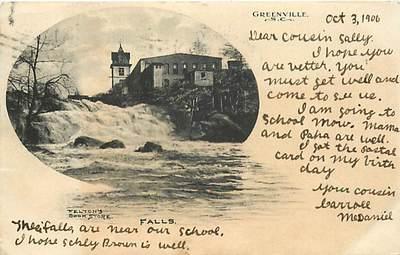 GREENVILLE.
S.C.
Oct 3, 1906
Dear Cousin Sally.
I hope you
are vetter. you
must get well and
come to se us.
I am going to
School now. Mama
and Papa are well.
I got the postal
card on my birth
day
your cousin
Carroll
McDaniel
FELTON'S
BOOK STORE.
FALLS.
These falls are near our school.
I hope Schly Brown is well.